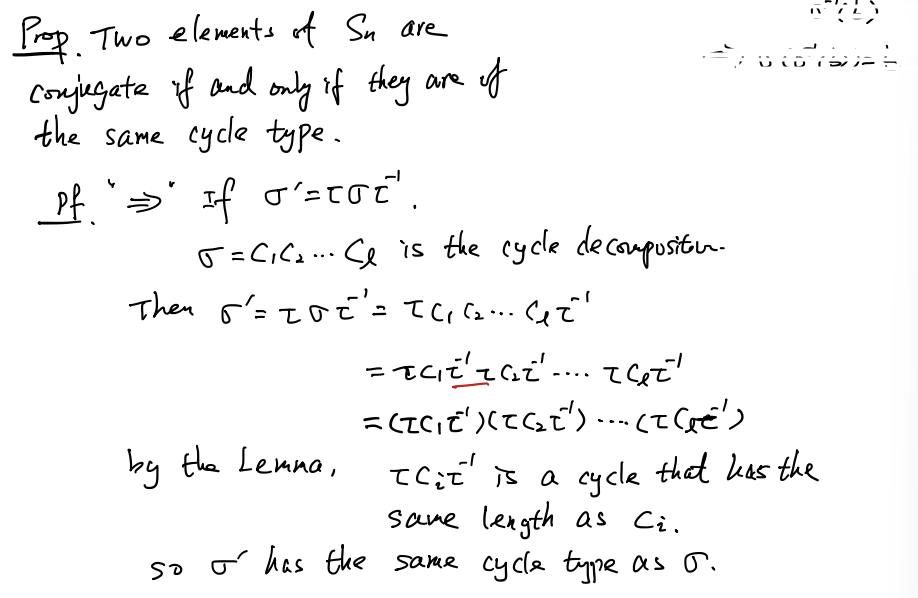 Prop. Two elements of Sn are
conjugate if and only if they are of
the same cycle type.
Pf. "⇒" If σ′=τστ⁻¹.
σ=C₁C₂...Cℓ is the cycle decomposition.
Then σ′=τστ⁻¹=τC₁C₂...Cℓτ⁻¹
=τC₁τ⁻¹τC₂τ⁻¹....τCℓτ⁻¹
=(τC₁τ⁻¹)(τC₂τ⁻¹)....(τCℓτ⁻¹)
by the Lemma, τCᵢτ⁻¹ is a cycle that has the
same length as Cᵢ.
so σ′ has the same cycle type as σ.